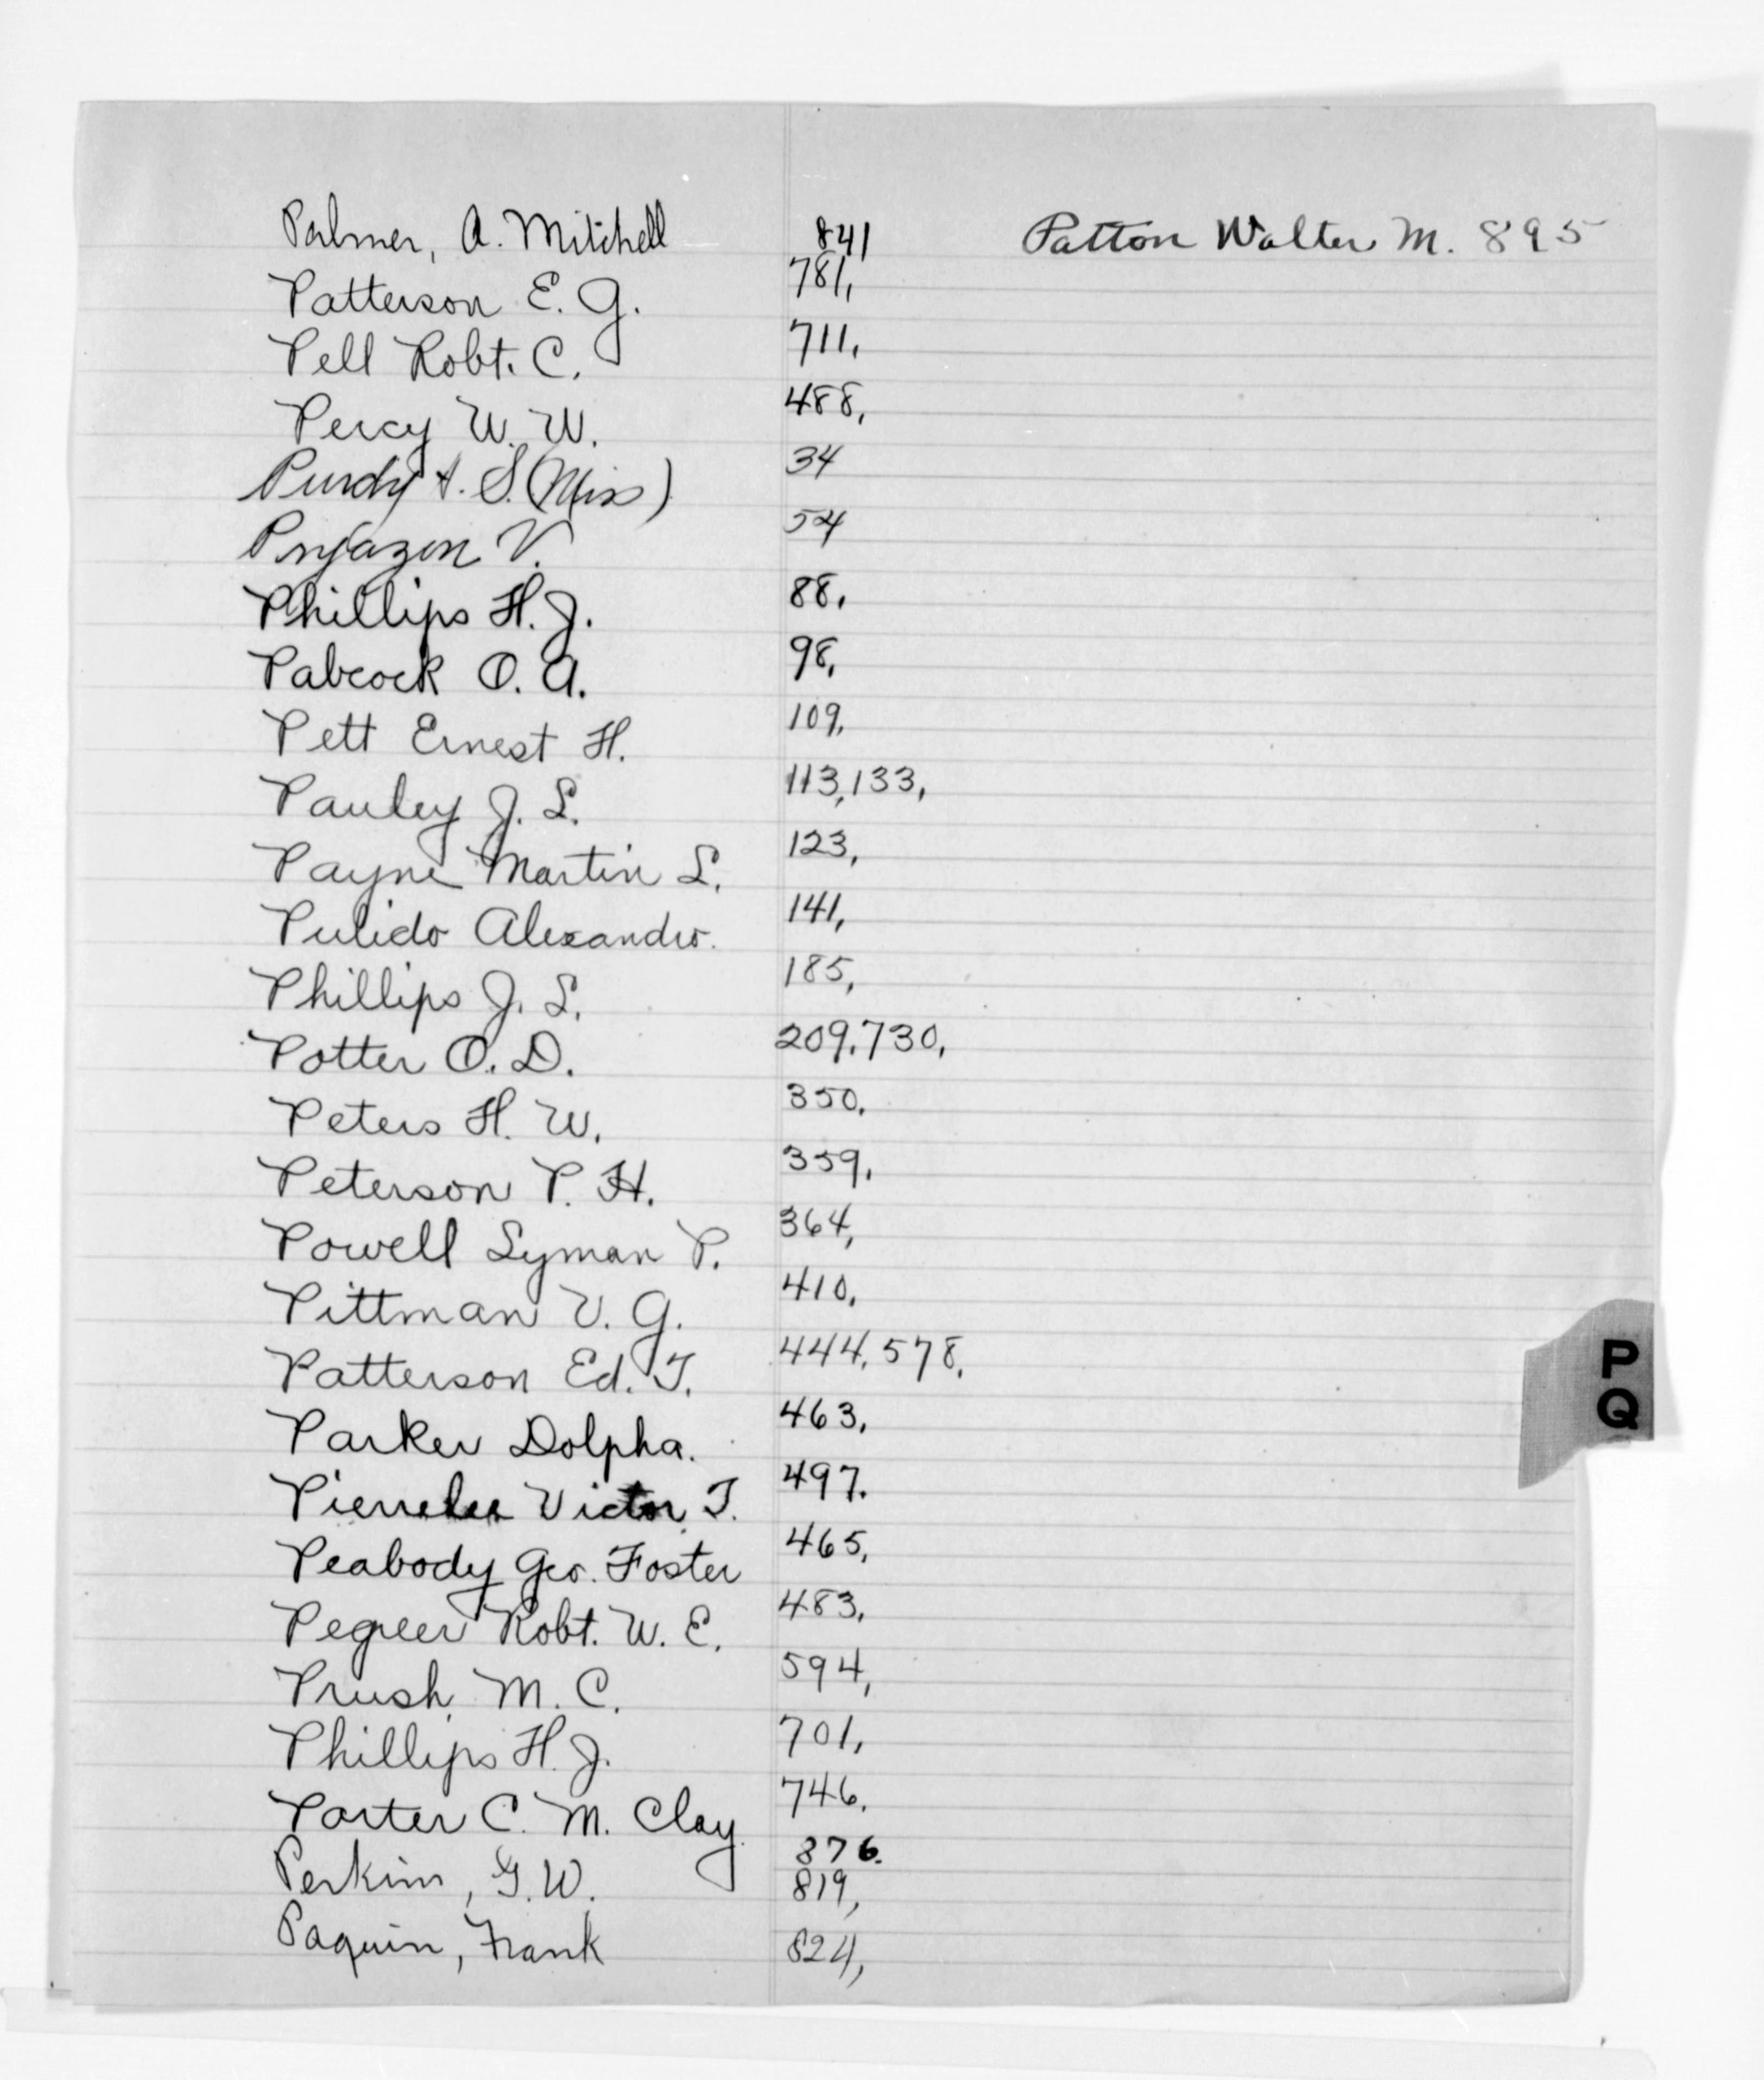 Palmer, A. Mitchell 841
Patton Walter M. 895
Patterson E. G. 781,
Pell Robt. C. 711,
Percy W. W. 488,
Purdy A. S. (Miss) 34
V. 54
Phillips H. J. 88,
Pabcock O. A. 98,
Pett Ernest H. 109,
Pauley J. L. 113, 133,
Payne Martin L. 123,
Pulido Alexandro. 141,
Phillips J. L. 185,
Potter O. D. 209, 730,
Peters H. W. 350,
Peterson P. H. 359,
Powell Lyman P. 364,
Pittman V. G. 410,
Patterson Ed. T. 444, 578,
Parker Dolpha. 463,
Victor T. 497.
Peabody Geo. Foster 465,
Robt. W. E. 483,
Prush M. C. 594,
Phillips H. J. 701,
Porter C. M. Clay. 746,
876.
Perkins, G. W. 819,
Paquin, Frank 824,
P
Q